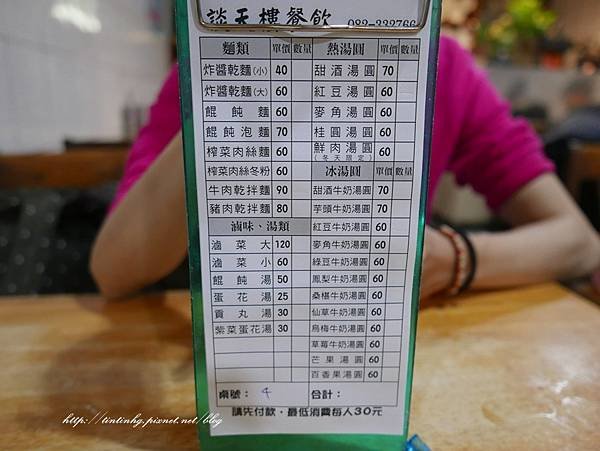 談天樓餐飲 082-332766
麵類 單價 數量 熱湯圓 單價 數量
炸醬乾麵(小) 40 甜酒湯圓 70
炸醬乾麵(大) 60 紅豆湯圓 60
餛飩麵 60 麥角湯圓 60
餛飩泡麵 70 桂圓湯圓 60
榨菜肉絲麵 60 鮮肉湯圓 60
(冬天限定)
榨菜肉絲冬粉 60 冰湯圓 單價 數量
牛肉乾拌麵 90 甜酒牛奶湯圓 70
豬肉乾拌麵 80 芋頭牛奶湯圓 70
滷味、湯類 紅豆牛奶湯圓 60
滷菜大 120 麥角牛奶湯圓 60
滷菜小 60 綠豆牛奶湯圓 60
餛飩湯 50 鳳梨牛奶湯圓 60
蛋花湯 25 桑椹牛奶湯圓 60
貢丸湯 30 仙草牛奶湯圓 60
紫菜蛋花湯 30 烏梅牛奶湯圓 60
草莓牛奶湯圓 60
芒果湯圓 60
百香果湯圓 60
桌號： 4 合計：
請先付款，最低消費每人30元
http://tintinhg.pixnet.net/blog